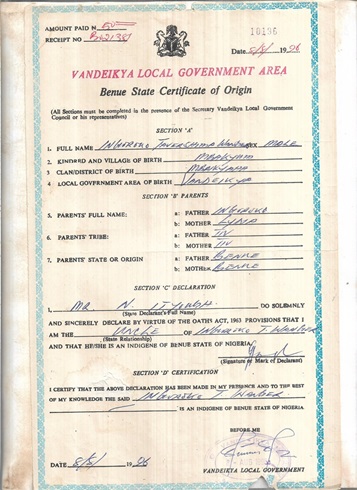 AMOUNT PAID N
RECEIPT NO
10196
Date 8/5/ 1996
VANDEIKYA LOCAL GOVERNMENT AREA
Benue State Certificate of Origin
(All Sections must be completed in the presence of the Secretary Vandeikya Local Government
Council or his representatives)
SECTION 'A'
1. FULL NAME SEX MALE
2. KINDRED AND VILLAGE OF BIRTH MBAKYAHA
3. CLAN/DISTRICT OF BIRTH MBAKYAHA
4 LOCAL GOVERNMENT AREA OF BIRTH VANDEIKYA
SECTION 'B' PARENTS
5. PARENTS' FULL NAME: a: FATHER
b: MOTHER LYDIA
6. PARENTS' TRIBE: a: FATHER TIV
b: MOTHER TIV
7. PARENTS' STATE OR ORIGIN a: FATHER BENUE
b: MOTHER BENUE
SECTION 'C' DECLARATION
I, MR N. DO SOLEMNLY
(State Declarant's Full Name)
AND SINCERELY DECLARE BY VIRTUE OF THE OATHS ACT, 1963 PROVISIONS THAT I
AM THE UNCLE OF T. WANGER
(State Relationship)
AND THAT HE/SHE IS AN INDIGENE OF BENUE STATE OF NIGERIA.
(Signature or Mark of Declarant)
SECTION 'D' CERTIFICATION
I CERTIFY THAT THE ABOVE DECLARATION HAS BEEN MADE IN MY PRESENCE AND TO THE BEST
OF MY KNOWLEDGE THE SAID T. WANGER
IS AN INDIGENE OF BENUE STATE OF NIGERIA
BEFORE ME
DATE 8/5/ 1996
VANDEIKYA LOCAL GOVERNMENT